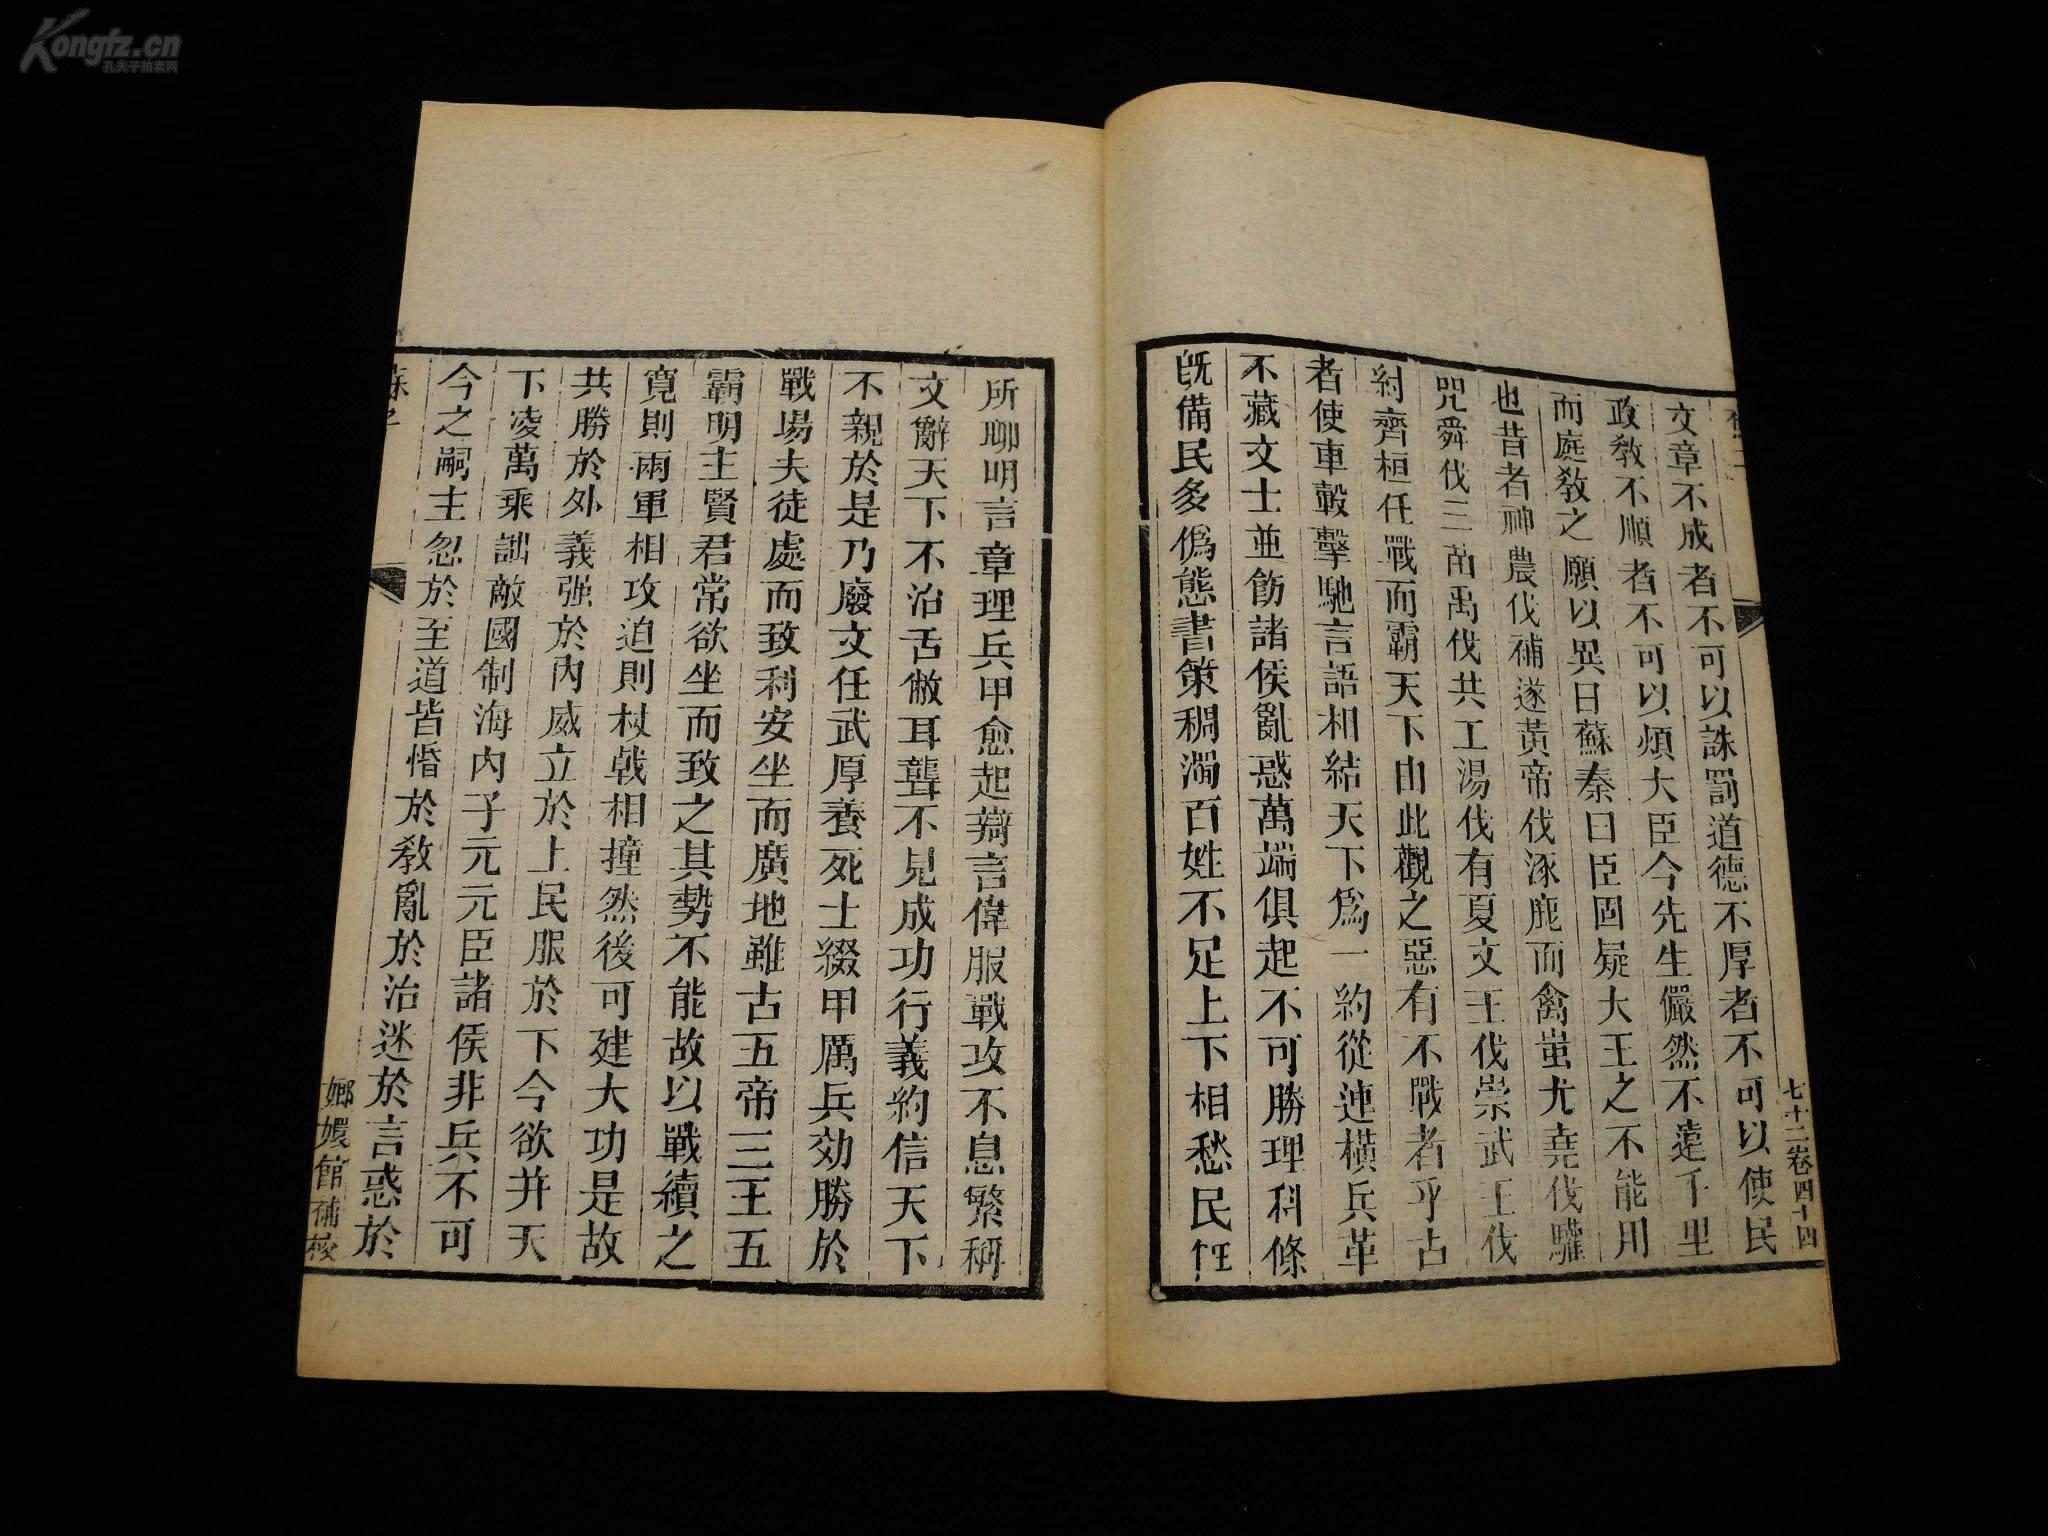 Kongfz.cn
孔夫子拍卖网
七十二卷四十四
文章不成者不可以誅罰道德不厚者不可以使民
政敎不順者不可以煩大臣今先生儼然不遠千里
而庭敎之願以異日蘇秦曰臣固疑大王之不能用
也昔者神農伐補遂黃帝伐涿鹿而禽蚩尤堯伐驩
兜舜伐三苗禹伐共工湯伐有夏文王伐崇武王伐
紂齊桓任戰而霸天下由此觀之惡有不戰者乎古
者使車轂擊馳言語相結天下爲一約從連橫兵革
不藏文士並飭諸侯亂惑萬端俱起不可勝理科條
旣備民多僞態書策稠濁百姓不足上下相愁民無
所聊明言章理兵甲愈起辯言偉服戰攻不息繁稱
文辭天下不治舌敝耳聾不見成功行義約信天下
不親於是乃廢文任武厚養死士綴甲厲兵効勝於
戰場夫徒處而致利安坐而廣地雖古五帝三王五
霸明主賢君常欲坐而致之其勢不能故以戰續之
寛則兩軍相攻迫則杖戟相撞然後可建大功是故
共勝於外義强於內威立於上民服於下今欲并天
下凌萬乘詘敵國制海內子元元臣諸侯非兵不可
今之嗣主忽於至道皆惛於敎亂於治迷於言惑於
嫏嬛館補校